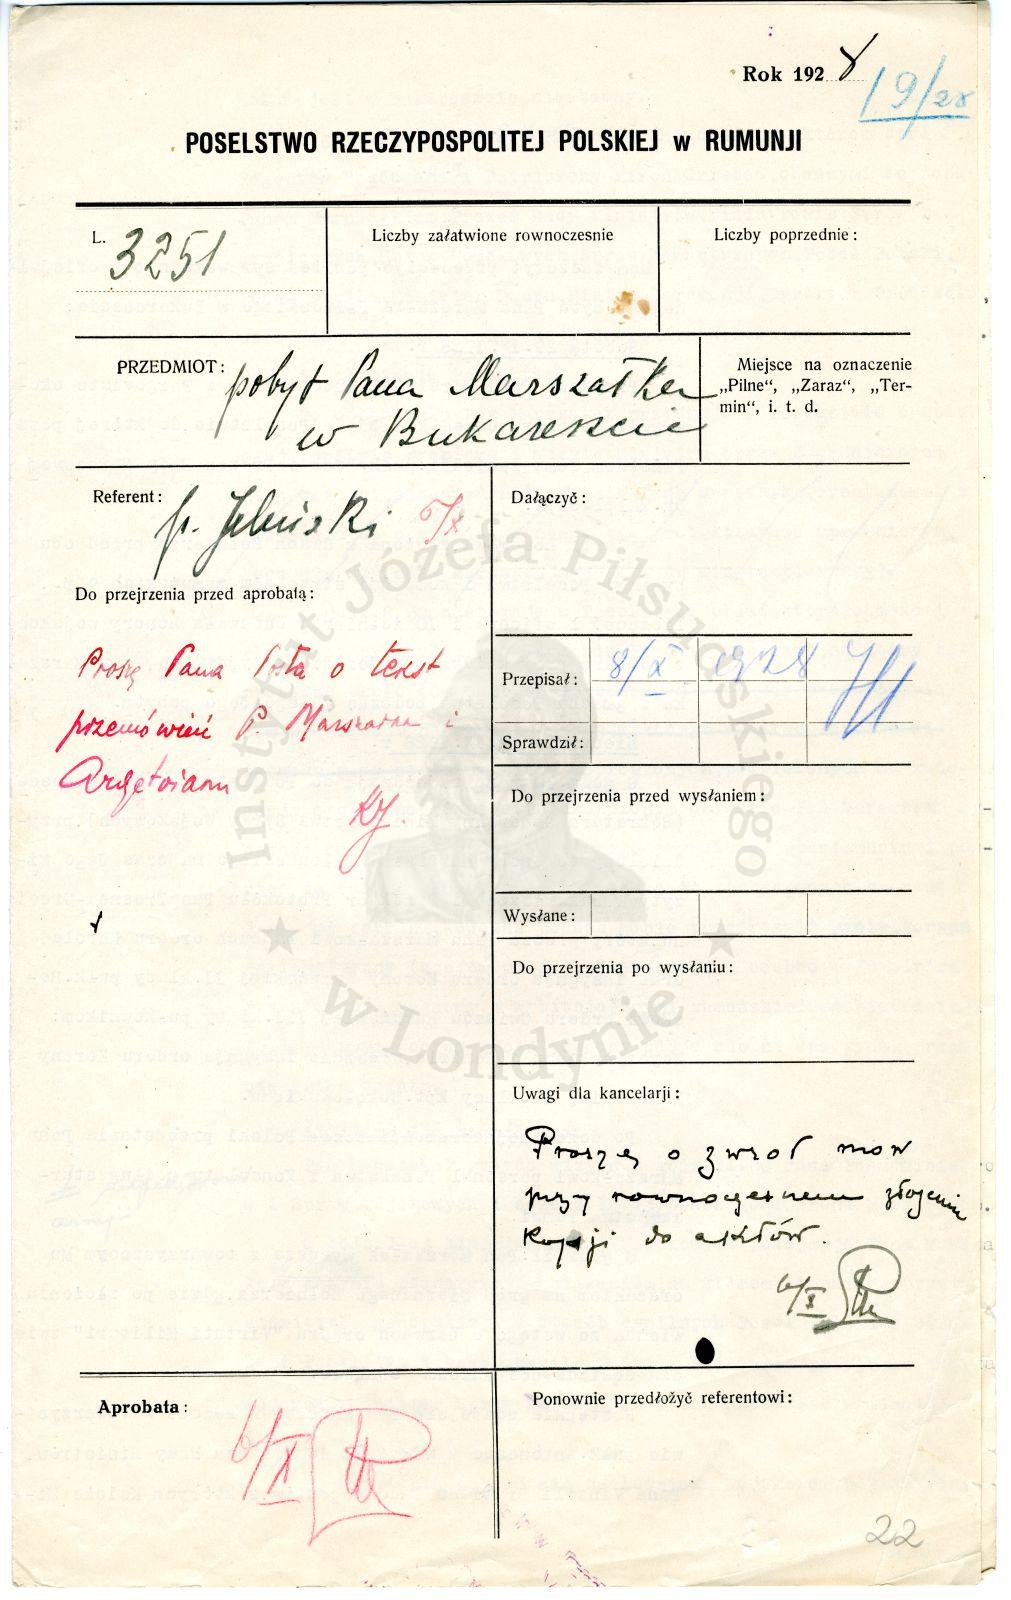 Rok 1928
19/28
POSELSTWO RZECZYPOSPOLITEJ POLSKIEJ w RUMUNJI
L. 3251
Liczby załatwione rownoczesnie
Liczby poprzednie :
PRZEDMIOT : pobyt Pana Marszałka
w Bukareszcie
Miejsce na oznaczenie
„Pilne“, „Zaraz“, „Ter-
min“, i. t. d.
Referent : p.
Dałączyč :
Do przejrzenia przed aprobatą :
Proszę Pana Posła o tekst
przemówień P. Marszałka i
Argetoianu
Przepisał : 8/X 1928
Sprawdził :
Do przejrzenia przed wysłaniem :
Wysłane :
Do przejrzenia po wysłaniu :
Uwagi dla kancelarji :
Proszę o zwrot mow
przy rownoczesnem złożeniu
kopji do aktów.
6/X
Aprobata :
6/X
Ponownie przedłożyč referentowi :
22
Instytut Józefa Piłsudskiego
w Londynie